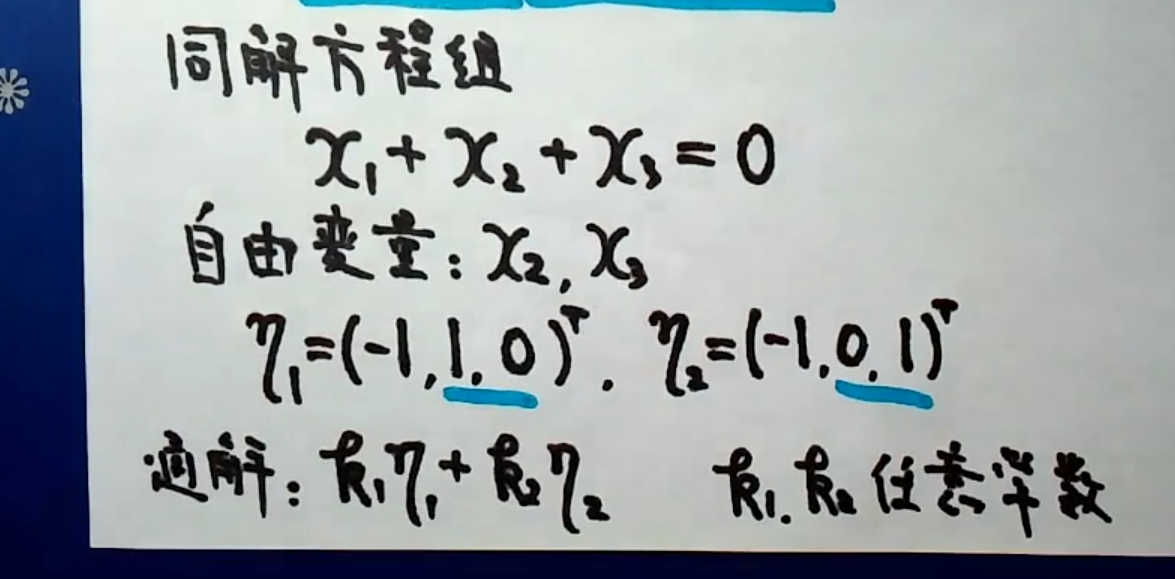 同解方程组
x₁+x₂+x₃=0
自由变量:x₂,x₃
η₁=(-1,1,0)ᵀ. η₂=(-1,0,1)ᵀ
通解:k₁η₁+k₂η₂ k₁.k₂任意常数